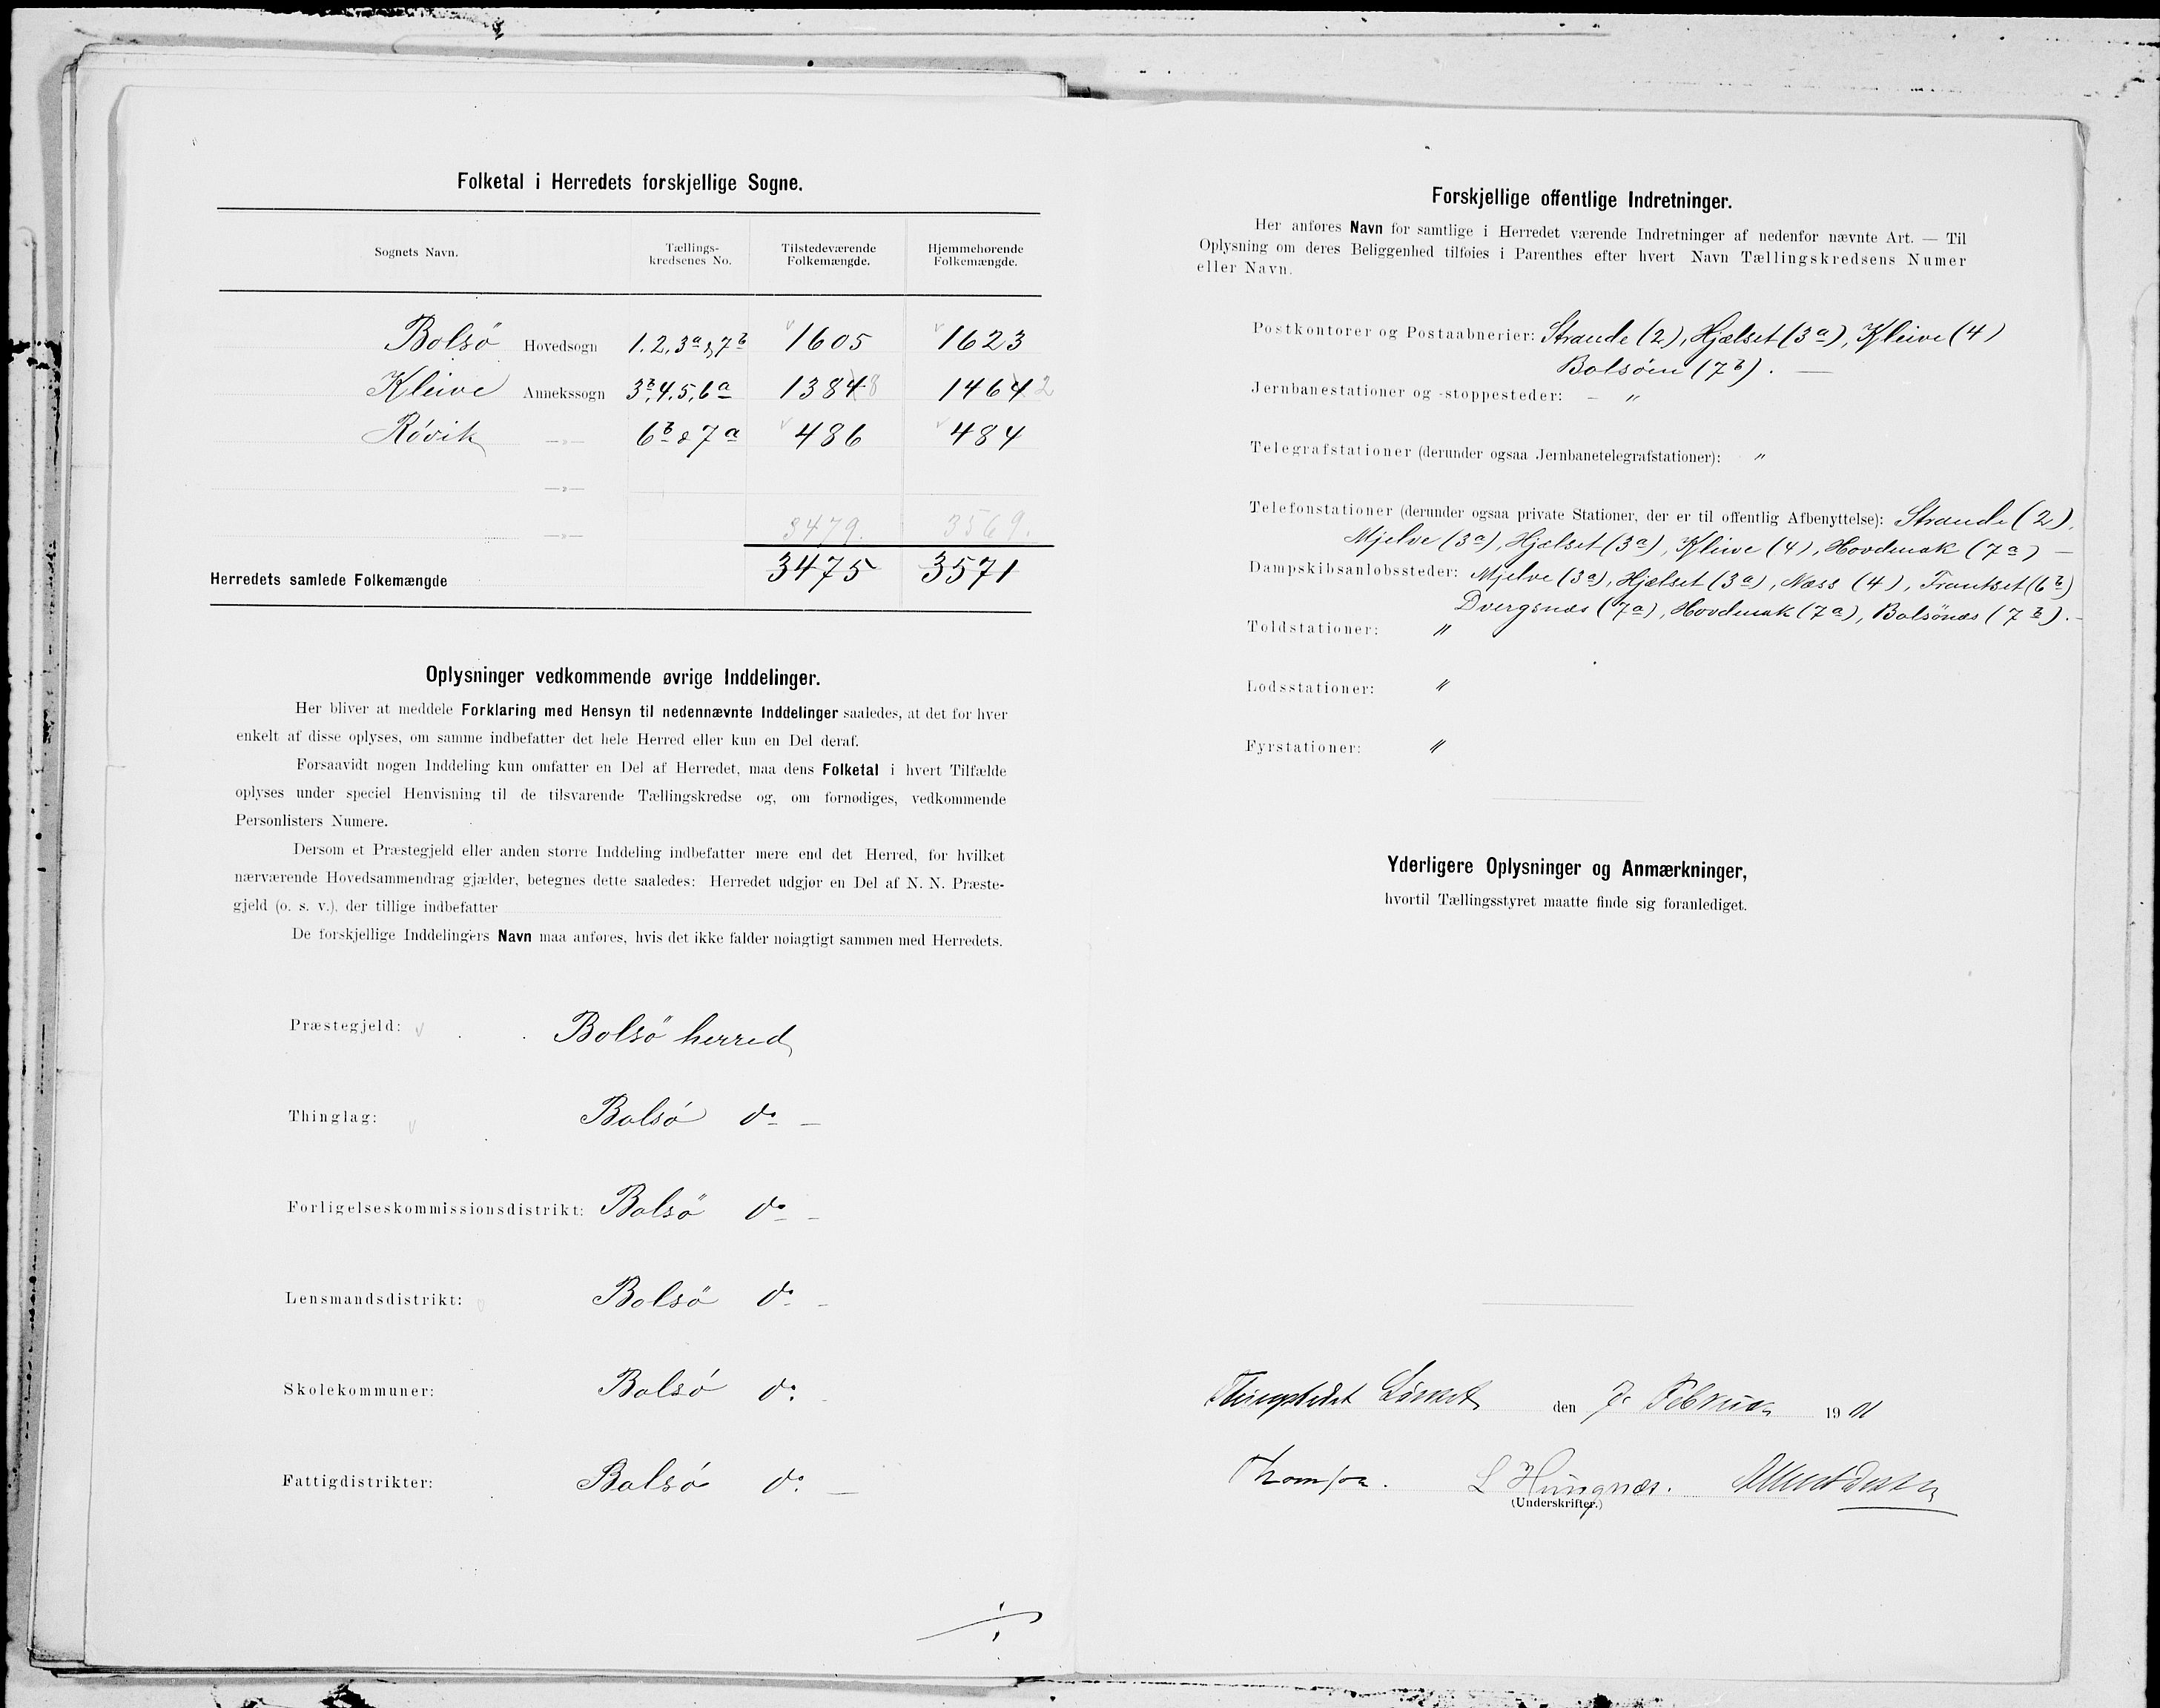 Folketal i Herredets forskjellige Sogne.
Sognets Navn. Tællings-kredsenes No. Tilstedeværende Folkemængde. Hjemmehørende Folkemængde.
Bolsö Hovedsogn 1.2.3a & 7b 1605 1623
Kleive Annekssogn 3b,4,5,6a 1384 8 1464 2
Røvik —»— 6b & 7a 486 484
—»—
—»— 3479. 3569.
Herredets samlede Folkemængde 3475 3571
Oplysninger vedkommende øvrige Inddelinger.
Her bliver at meddele Forklaring med Hensyn til nedennævnte Inddelinger saaledes, at det for hver
enkelt af disse oplyses, om samme indbefatter det hele Herred eller kun en Del deraf.
Forsaavidt nogen Inddeling kun omfatter en Del af Herredet, maa dens Folketal i hvert Tilfælde
oplyses under speciel Henvisning til de tilsvarende Tællingskredse og, om fornødiges, vedkommende
Personlisters Numere.
Dersom et Præstegjeld eller anden større Inddeling indbefatter mere end det Herred, for hvilket
nærværende Hovedsammendrag gjælder, betegnes dette saaledes: Herredet udgjør en Del af N. N. Præste-
gjeld (o. s. v.), der tillige indbefatter
De forskjellige Inddelingers Navn maa anføres, hvis det ikke falder nøiagtigt sammen med Herredets.
Præstegjeld: Bolsö herred
Thinglag: Bolsö do –
Forligelseskommissionsdistrikt: Bolsö do –
Lensmandsdistrikt: Bolsö do –
Skolekommuner: Bolsö do
Fattigdistrikter: Bolsö do –
Forskjellige offentlige Indretninger.
Her anføres Navn for samtlige i Herredet værende Indretninger af nedenfor nævnte Art. — Til
Oplysning om deres Beliggenhed tilføies i Parenthes efter hvert Navn Tællingskredsens Numer
eller Navn.
Postkontorer og Postaabnerier: Strande (2), Hjælset (3a), Kleive (4)
Bolsöen (7b). —
Jernbanestationer og -stoppesteder: – "
Telegrafstationer (derunder ogsaa Jernbanetelegrafstationer): "
Telefonstationer (derunder ogsaa private Stationer, der er til offentlig Afbenyttelse): Strande (2),
Mjelve (3a), Hjælset (3a), Kleive (4), Hovdenak (7a) —
Dampskibsanløbssteder: Mjelve (3a), Hjælset (3a), Næss (4), (6b)
Dvergsnæs (7a), Hovdenak (7a), Bolsönæs (7b). –
Toldstationer: "
Lodsstationer: "
Fyrstationer: "
Yderligere Oplysninger og Anmærkninger,
hvortil Tællingsstyret maatte finde sig foranlediget.
den 7 Februar 1901
L Hungnæs.
(Underskrifter.)